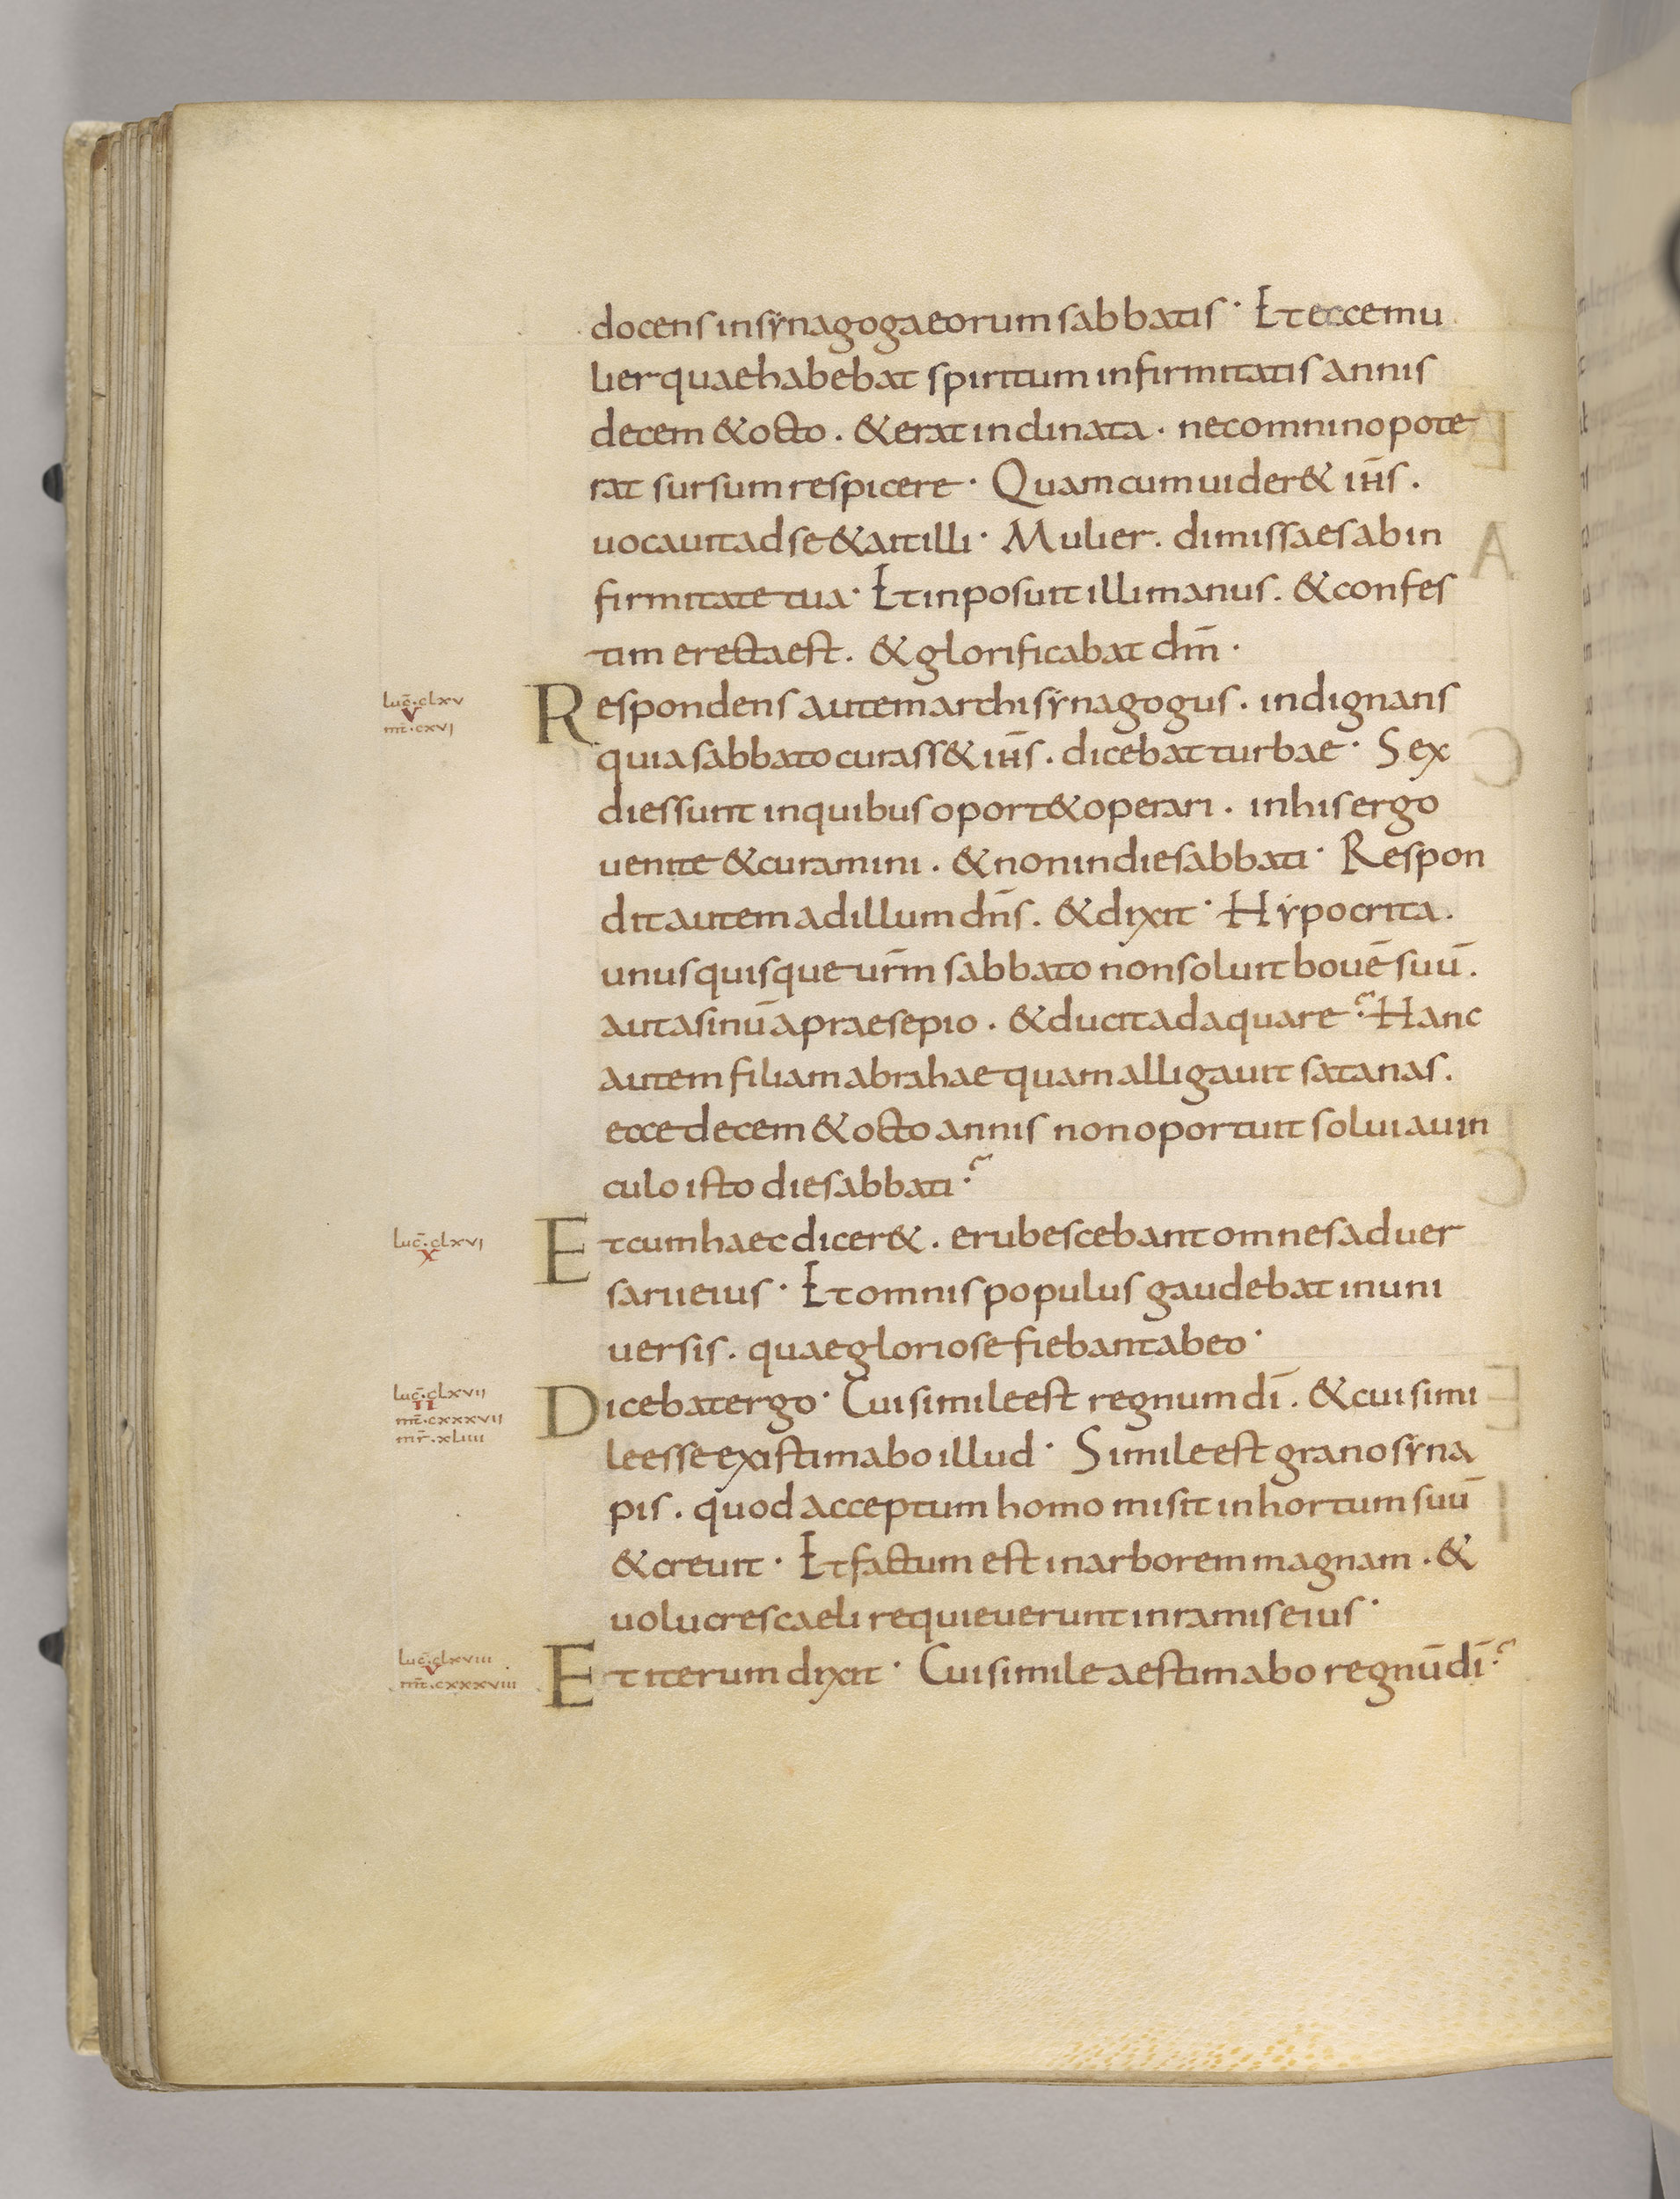 docens in synagoga eorum sabbatis · Et ecce mu
lier quae habebat spiritum infirmitatis annis
decem & octo . & erat inclinata . nec omnino pote
rat sursum respicere · Quam cum uider& ih̅s .
uocauit ad se & ait illi · Mulier . dimissa es ab in
firmitate tua · Et inposuit illi manus . & confes
tim erecta est . & glorificabat dm̅ ·
luc̅ . clxv
v
mt̅ . cxvi
Respondens autem archisynagogus . indignans
quia sabbato curass& ih̅s . dicebat turbae · Sex
dies sunt in quibus oport& operari . in his ergo
uenite & curamini . & non in die sabbati · Respon
dit autem ad illum dn̅s . & dixit · Hypocrita .
unusquisque ur̅m sabbato non soluit bouē suū .
aut asinū a praesepio . & ducit adaquare ? Hanc
autem filiam abrahae quam alligauit satanas .
ecce decem & octo annis non oportuit solui a uin
culo isto die sabbati ?
luc̅ . clxvi
x
Et cum haec dicer& . erubescebant omnes aduer
sarii eius · Et omnis populus gaudebat in uni
uersis . quae gloriose fiebant ab eo ·
luc̅ . clxvii
ii
mt̅ . cxxxvii
mr̅ . xliiii
Dicebat ergo · Cui simile est regnum di̅ . & cui simi
le esse existimabo illud · Simile est grano syna
pis . quod acceptum homo misit in hortum suū
& creuit · Et factum est in arborem magnam . &
uolucres caeli requieuerunt in ramis eius ·
luc̅ . clxviii
v
mt̅ . cxxxviii
Et iterum dixit · Cui simile aestimabo regnū di̅ ?